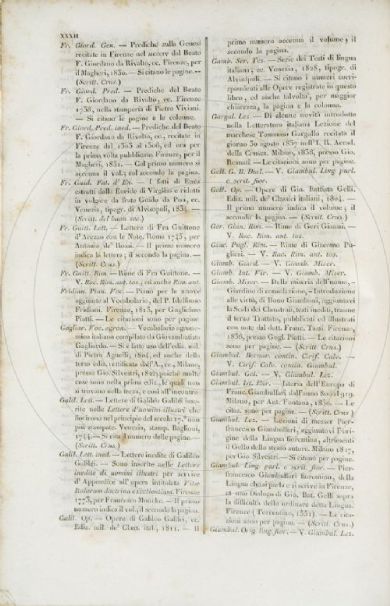 XXXII
Fr. Giord. Gen. — Prediche sulla Genesi
recitate in Firenze nel mccciv dal Beato
F. Giordano da Rivalto, ec. Firenze, per
il Magheri, 1830. — Si citano le pagine. —
(Scritt. Crus.)
Fr. Giord. Pred. — Prediche del Beato
F. Giordano da Rivalto, ec. Firenze
1738, nella stamperia di Pietro Viviani.
— Si citano le pagine e le colonne.
Fr. Giord. Pred. ined. — Prediche del Beato
F. Giordano da Rivalto, ec., recitate in
Firenze dal 1303 al 1306, ed ora per
la prima volta pubblicate. Firenze, per il
Magheri, 1831. — Col primo numero si
accenna il vol.; col secondo la pagina.
Fr. Guid. Fat. d'En. — I fatti di Enea
estratti dalla Eneide di Virgilio e ridotti
in volgare da frate Guido da Pisa, ec.
Venezia, tipogr. di Alvisopoli,
(Scritt. del buon sec.)
Fr. Guitt. Lett. — Lettere di Fra Guittone
d'Arezzo con le Note. Roma 1745, per
Antonio de' Rossi. — Il primo numero
indica la lettera; il secondo la pagina. —
(Scritt. Crus.)
Fr. Guitt. Rim. — Rime di Fra Guittone. —
V. Rac. Rim. ant. tos.; ed anche Rim. ant.
Fridian. Pian. Voc. — Piani per le nuove
aggiunte al Vocabolario, del P. Idelfonso
Fridiani. Firenze, 1813, per Guglielmo
Piatti. — Le citazioni sono per pagine
Gagliar. Voc. agron. — Vocabolario agronomico
italiano compilato da Giovambatista
Gagliardo. — Si è fatto uso dell'ediz. mil.
di Pietro Agnelli, 1804, ed anche della
terza ediz. certificata dall'A., ec., Milano,
presso Gio. Silvestri, 1822, poiché molte
cose sono nella prima ediz., le quali non
si trovano nella terza, e così all'incontro.
Galil. Lett. — Lettere di Galileo Galilei inserite
nelle Lettere d'uomini illustri che
fiorirono nel principio del secolo 17.° non
più stampate. Venezia, stamp. Baglioni,
1744. — Si cita il numero delle pagine. —
(Scritt. Crus.)
Galil. Lett. ined. — Lettere inedite di Galileo
Galilei. — Sono inserite nelle Lettere
inedite di uomini illustri per servire
d'Appendice all'opera intitolata Vitæ
Italorum doctrina excellentium. Firenze
1773, per Francesco Moücke. — Il primo
numero indica il vol., il secondo la pagina.
Galil. Op. — Opere di Galileo Galilei, ec.
Ediz. mil. de' Class. ital., 1811. — Il
primo numero accenna il volume; il
secondo la pagina.
Gamb. Ser. Tes. — Serie dei Testi di lingua
italiana, ec. Venezia, 1828, tipogr. di
Alvisopoli. — Si citano i numeri corrispondenti
alle Opere registrate in questo
libro, ed anche talvolta, per maggior
chiarezza, la pagina e la colonna.
Gargal. Les. — Di alcune novità introdotte
nella Letteratura italiana Lezione del
marchese Tommaso Gargallo recitata il
giorno 30 agosto 1837 nell'I. R. Accad.
della Crusca. Milano, 1838, presso Gio.
Resnati. — Le citazioni sono per pagine.
Gell. G. B. Dial. — V. Giambul. Ling. parl.
e scriv. fior.
Gell. Op. — Opere di Gio. Battista Gelli.
Ediz. mil. de' Classici italiani, 1804. —
Il primo numero indica il volume; il
secondo la pagina. — (Scritt. Crus.)
Ger. Giann. Rim. — Rime di Geri Giannni.
— V. Rac. Rim. ant. tos.
Giac. Pugl. Rim. — Rime di Giacomo Pugliesi.
— V. Rac. Rim. ant. tos.
Giamb. Giard. — V. Giamb. Miser.
Giamb. Int. Vir. — V. Giamb. Miser.
Giamb. Miser. — Della miseria dell'uomo, —
Giardino di consolazione, — Introduzione
alle virtù, di Bono Giamboni, aggiuntavi
la Scala dei Claustrali, testi inediti, tranne
il terzo Trattato, pubblicati ed illustrati
con note dal dott. Franc. Tassi. Firenze,
1836, presso Gugl. Piatti. — Le citazioni
sono per pagine. — (Scritt. Crus.)
Giambul. Bernar. contin. Cirif. Calv. —
V. Cirif. Calv. contin. Giambul.
Giambul. Geli. — V. Giambul. Lez.
Giambul. Ist. Eur. — Istoria dell'Europa di
Franc. Giambullari dall'anno 800 al 919.
Milano, per Ant. Fontana, 1830. — Le
citaz. sono per pagine. — (Scritt. Crus.)
Giambul. Lez. — Lezioni di messer Pierfrancesco
Giambullari, aggiuntovi l'origine
della lingua fiorentina, altrimenti
il Gello dello stesso autore. Milano 1827,
per Gio. Silvestri. — Si citano per pagina.
Giambul. Ling. parl. e scriv. fior. — Pierfrancesco
Giambullari fiorentino, della
Lingua che si parla e si scrive in Firenze,
et uno Dialogo di Gio. Bat. Gelli sopra
la difficultà dello ordinare detta Lingua.
Firenze (Torrentino, 1551). — Le citazioni
sono per pagina. — (Scritt. Crus.)
Giambul. Orig. ling. fior. — V. Giambul. Lez.